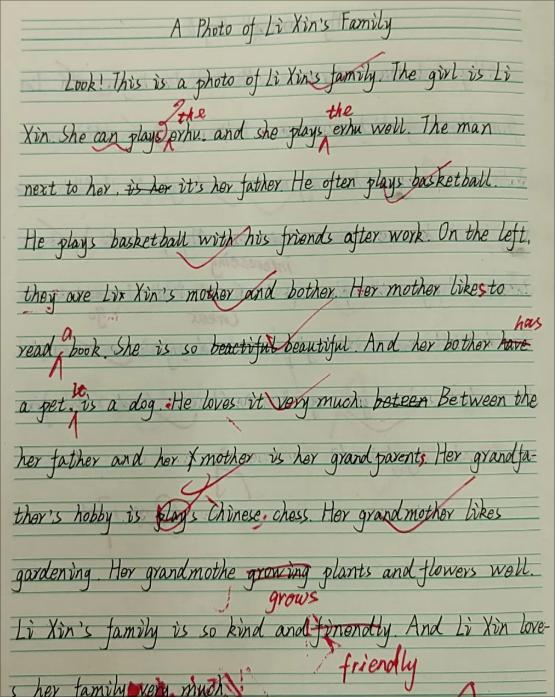 A Photo of Li Xin's Family
Look! This is a photo of Li Xin's family. The girl is Li
the the
Xin. She can plays erhu. and she plays erhu well. The man
next to her, is her it's her father He often plays basketball.
He plays basketball with his friends after work. On the left,
they are Lix Xin's mother and bother. Her mother likes to
a has
read book. She is so beactiful beautiful. And her bother have
It
a pet. is a dog. He loves it very much. beteen Between the
her father and her mother is her grandparents. Her grandfa-
ther's hobby is plays Chinese chess. Her grandmother likes
gardening. Her grandmothe growing plants and flowers well.
grows
Li Xin's family is so kind and finendly. And Li Xin love-
friendly
s her family very much